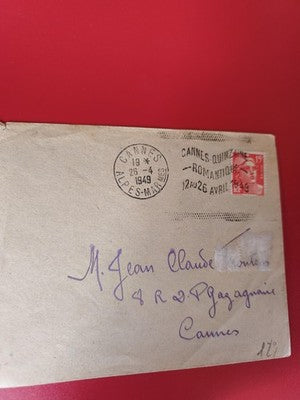 CANNES
19 *
26 - 4
1949
ALPES-MAR MES
CANNES QUINZAINE
ROMANTIQUE
12 AU 26 AVRIL 1949
M. Jean Claude
8 R d P Gazagnaire
Cannes